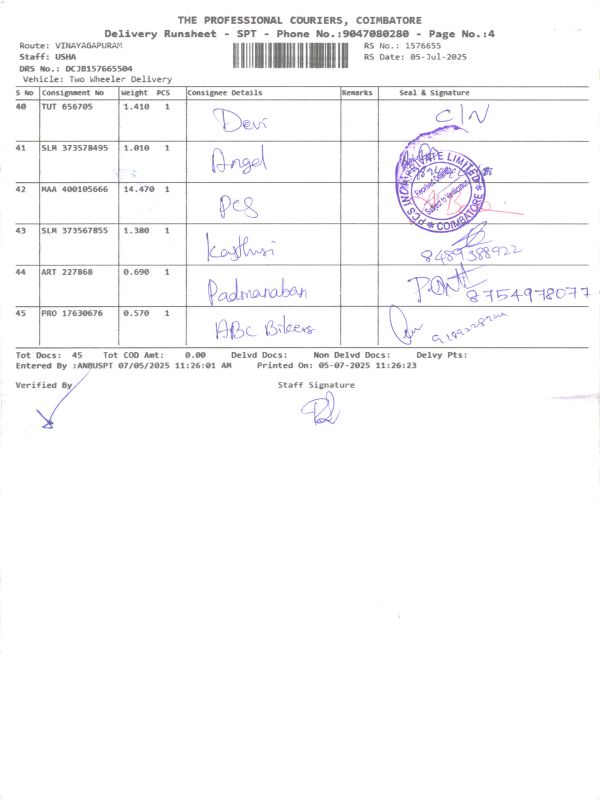 THE PROFESSIONAL COURIERS, COIMBATORE
Delivery Runsheet - SPT - Phone No.:9047080280 - Page No.:4
Route: VINAYAGAPURAM RS No.: 1576655
Staff: USHA RS Date: 05-Jul-2025
DRS No.: DCJB157665504
Vehicle: Two Wheeler Delivery
S No Consignment No Weight PCS Consignee Details Remarks Seal & Signature
40 TUT 656705 1.410 1 Devi C/N
41 SLM 373578495 1.010 1 Angel
42 MAA 400105666 14.470 1 PCS
PRIVATE LIMITED * COIMBATORE * PCS
Subject to Verification
43 SLM 373567855 1.380 1 8489388922
44 ART 227868 0.690 1 Padmanaban 8754978077
45 PRO 17630676 0.570 1 ABC Bikers
Tot Docs: 45 Tot COD Amt: 0.00 Delvd Docs: Non Delvd Docs: Delvy Pts:
Entered By :ANBUSPT 07/05/2025 11:26:01 AM Printed On: 05-07-2025 11:26:23
Verified By Staff Signature